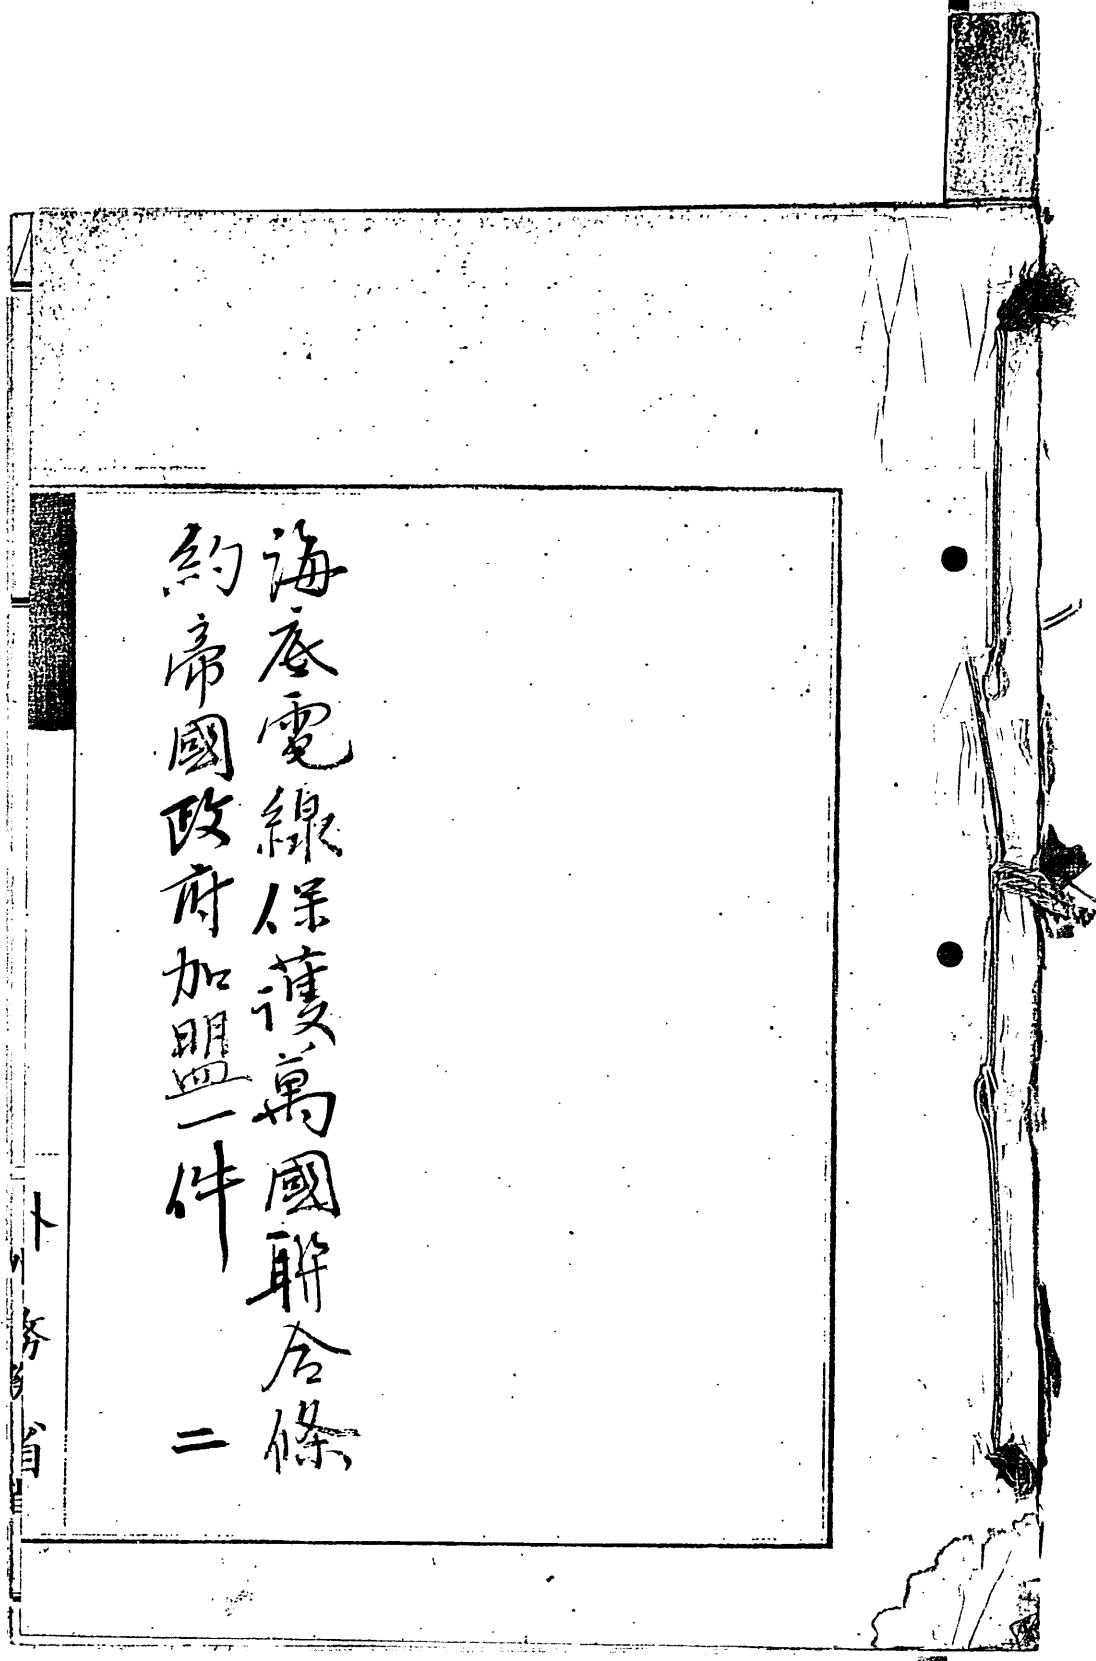 海底電線保護萬國聯合條
約帝國政府加盟一件　二
外務省